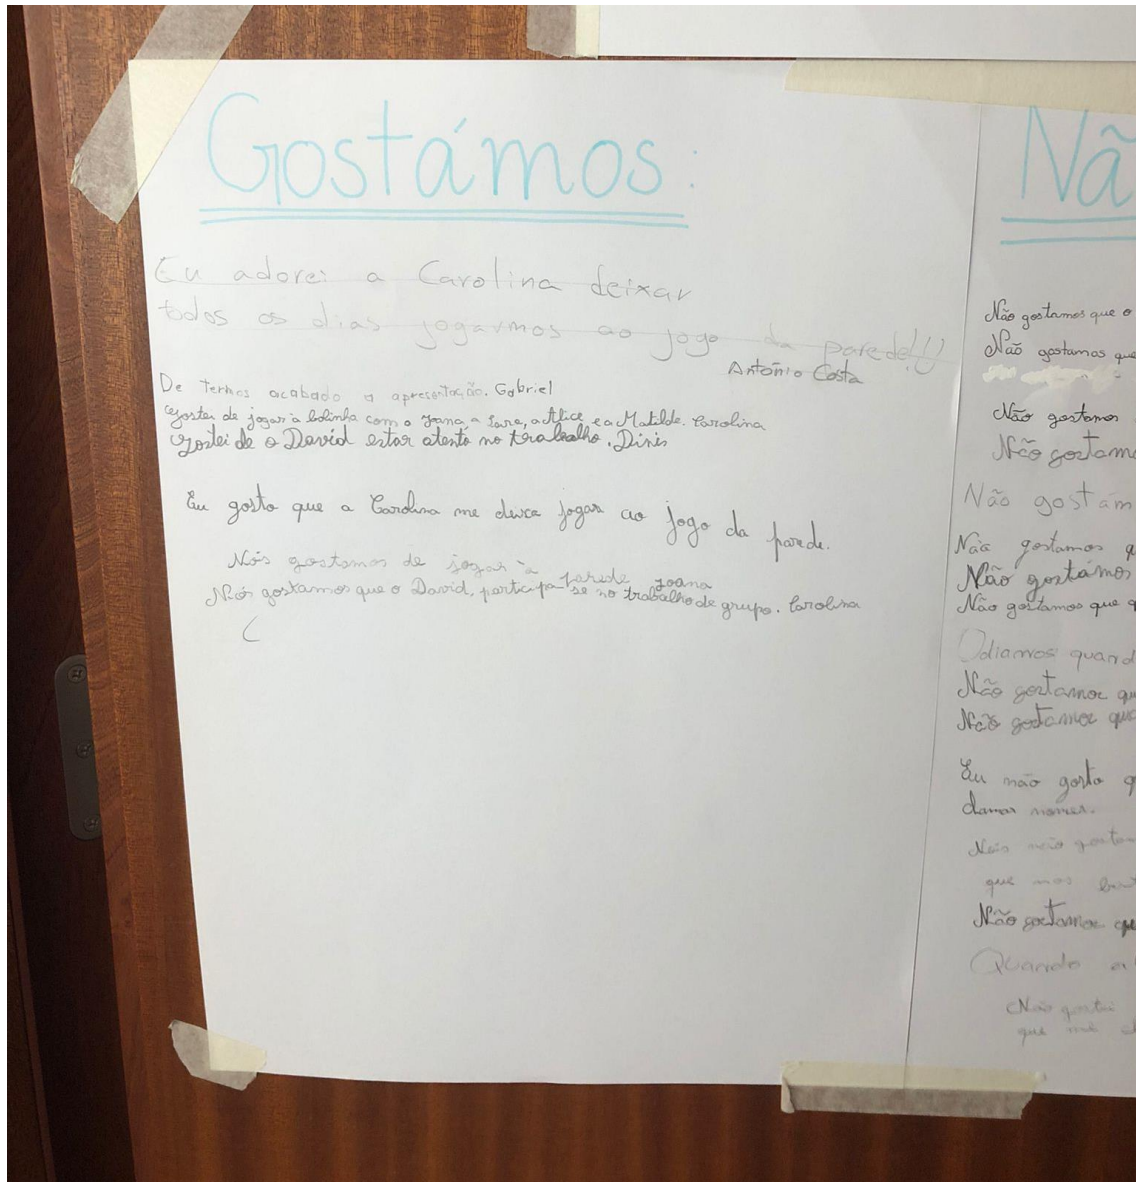 Gostámos:
Eu adorei a Carolina deixar
todos os dias jogarmos ao jogo da parede!!!
António Costa
De termos acabado a apresentação. Gabriel
Gostei de jogar à bolinha com a Joana, a Lara, a Alice e a Matilde. Carolina
Gostei de o David estar atento no trabalho. Dinis
Eu gosto que a Carolina me deixa jogar ao jogo da parede.
Nós gostamos de jogar à parede Joana
Nós gostamos que o David, participa-se no trabalho de grupo. Carolina
Nã
Não gostamos que o
Não gostamos que
Não gostamos
Não gostamo
Não gostám
Não gostamos q
Não gostámos
Não gostamos que q
Odiamos quand
Não gostamos qu
Não gostamos qua
Eu não gosto q
chamar nomes.
Nós não gosta
que nos bat
Não gostamos que
Quando a
Não gostei
que me